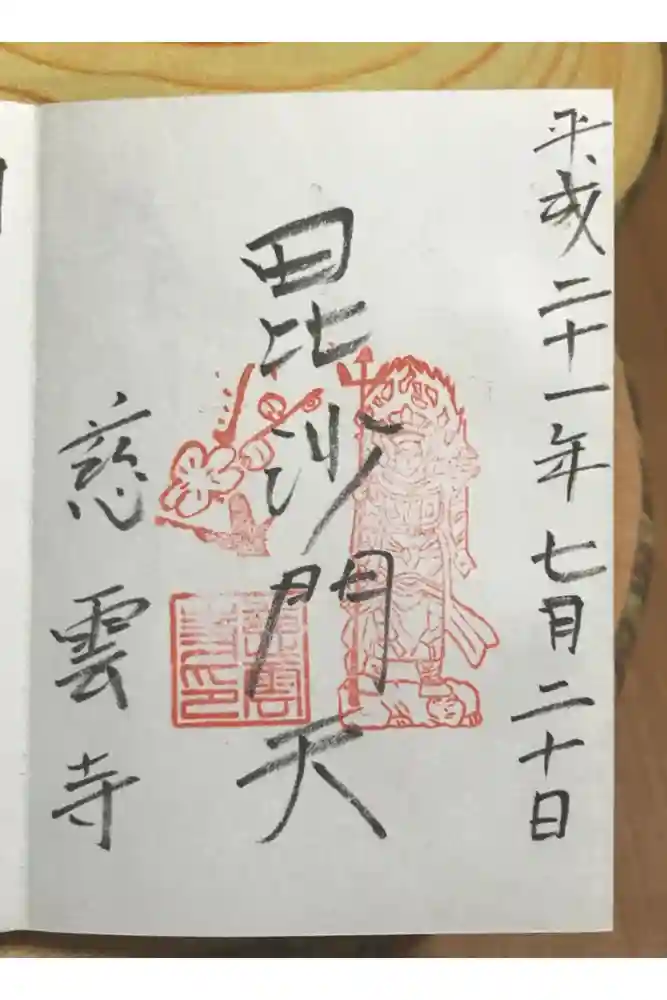 平成二十一年七月二十日
毘沙門天
慈雲寺